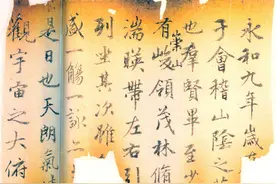 永和九年歲
于會稽山陰之
也群賢畢至少
有崇山峻領茂林脩
湍暎帶左右引
列坐其次雖
盛一觴一詠
是日也天朗氣
觀宇宙之大俯